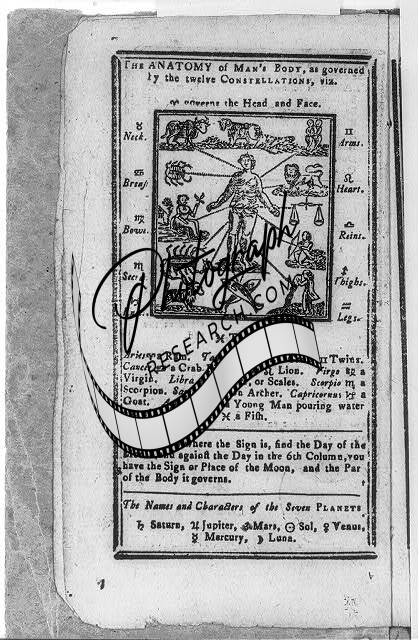 THE ANATOMY of MAN'S BODY, as governed
by the twelve CONSTELLATIONS, viz.
♈ governs the Head and Face.
♉
Neck.
♊
Arms.
♋
♌
Heart.
♍
♎
Reins.
♏
♐
Thighs.
♒
Legs.
Photograph
RESEARCH.COM
♓
Aries ♈ ♊ Twins.
Cancer ♋ a Crab. ♌ Lion. Virgo ♍ a
Virgin. Libra or Scales. Scorpio ♏ a
Scorpion. Archer. Capricornus ♑ a
Goat. Young Man pouring water
♓ a Fish.
where the Sign is, find the Day of the
against the Day in the 6th Column, you
have the Sign or Place of the Moon, and the Par
of the Body it governs.
The Names and Characters of the Seven PLANETS
♄ Saturn, ♃ Jupiter, ♂ Mars, ☉ Sol, ♀ Venus,
☿ Mercury, ☽ Luna.